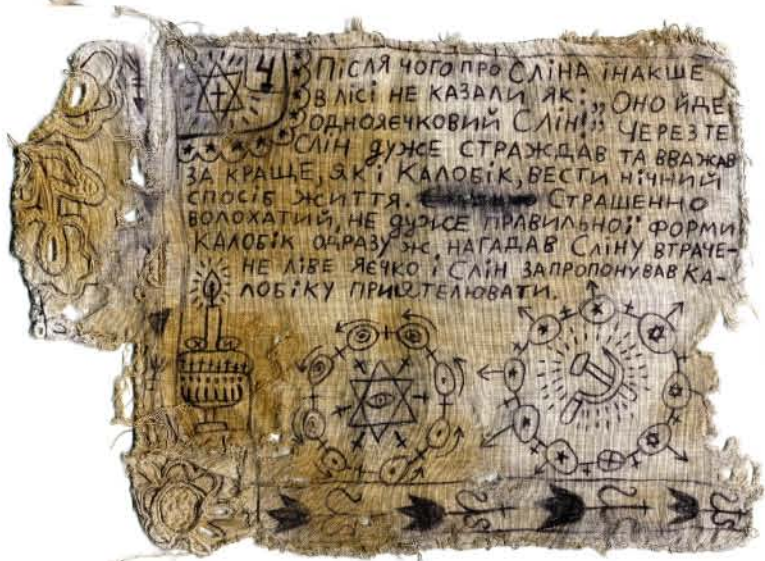 4
Після чого про Сліна інакше
в лісі не казали як: „Оно йде
однояєчковий Слін!” Через те
Слін дуже страждав та вважав
за краще, як і Калобік, вести нічний
спосіб життя. Страшенно
волохатий, не дуже правильної форми
Калобік одразу ж нагадав Сліну втраче-
не ліве яєчко і Слін запропонував Ка-
лобіку приятелювати.